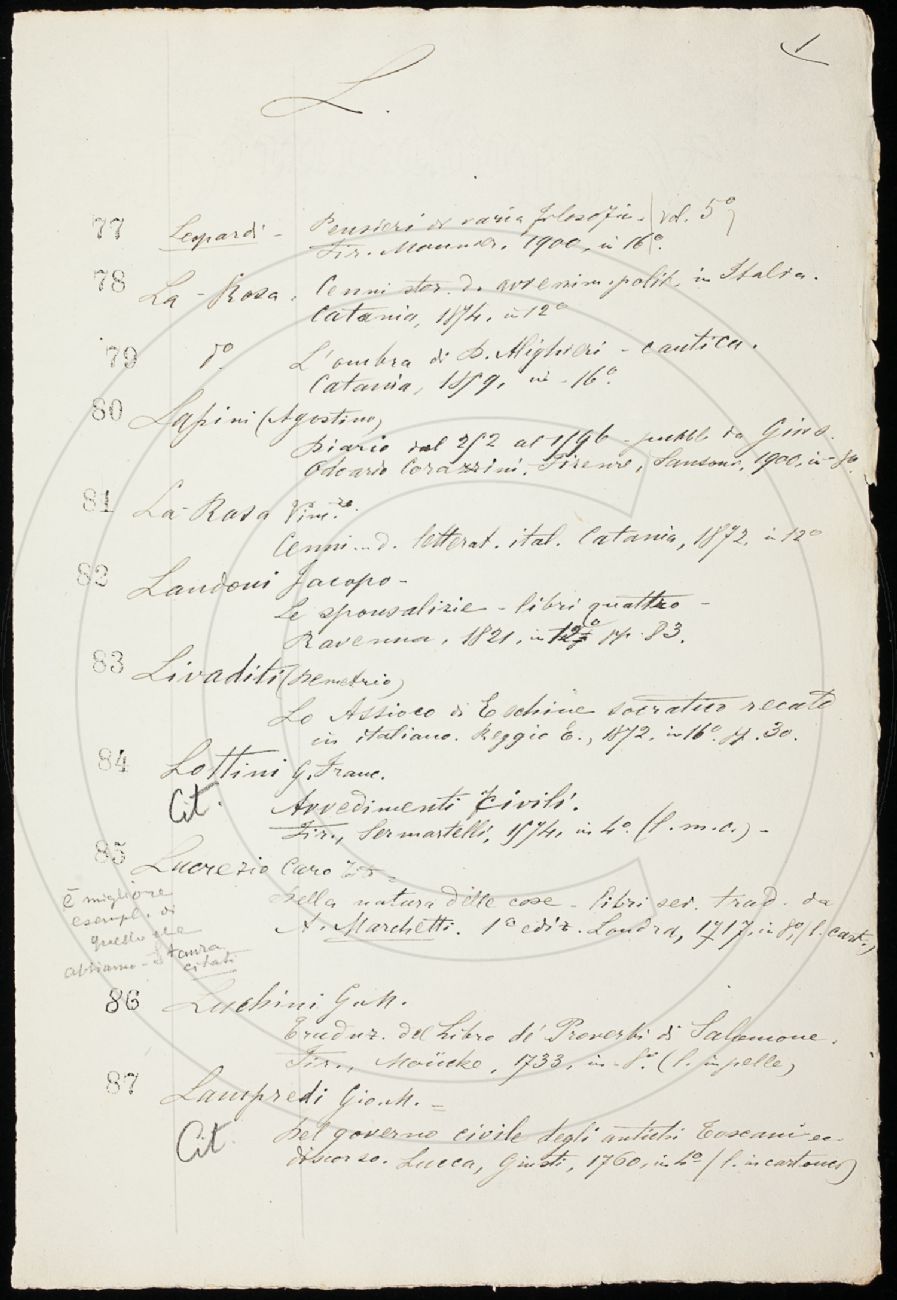 L.
77 Leopardi - Pensieri di varia filosofia - (vol. 5°)
Fir. Monnier. 1900, in 16°.
78 La-Rosa. Cenni stor. d. avvenim. polit. in Italia.
Catania, 1874. in 12°
79 d° L'ombra di D. Alighieri - cantica.
Catania, 1859, in-16°.
80 Lapini (Agostino)
Diario dal 252 al 1596 - pubbl. da Gius.
Odoardo Corazzini. Firenze, Sansoni, 1900, in-8°
81 La Rosa Vinc.zo.
Cenni d. letterat. ital. Catania, 1872. in 12°
82 Landoni Jacopo -
Le sponsalizie - libri quattro -
Ravenna, 1821, in 12° pp. 83.
83 Livaditi (Demetrio)
Lo Assioco di Eschine socratico recato
in italiano. Reggio E., 1872. in 16°. pp. 30.
84 Lottini G. Franc.
Cit. Avvedimenti civili.
Fir., Sermartelli, 1574, in 4°. (l. m. c.) -
85 Lucrezio Caro T. -
Della natura delle cose - libri sei. trad. da
A. Marchetti. 1a ediz. Londra, 1717. in 8°, (l. cart.,)
è migliore
esempl. di
quello che
abbiamo -
citati
86 Luchini G. M.
Traduz. del Libro de' Proverbi di Salomone.
Fir., Moücke, 1733, in-8°. (l. in pelle)
87 Lampredi Gio. M. =
Cit. Del governo civile degli antichi Toscani ec.
discorso. Lucca, Giusti, 1760, in 4° (l. in cartone)